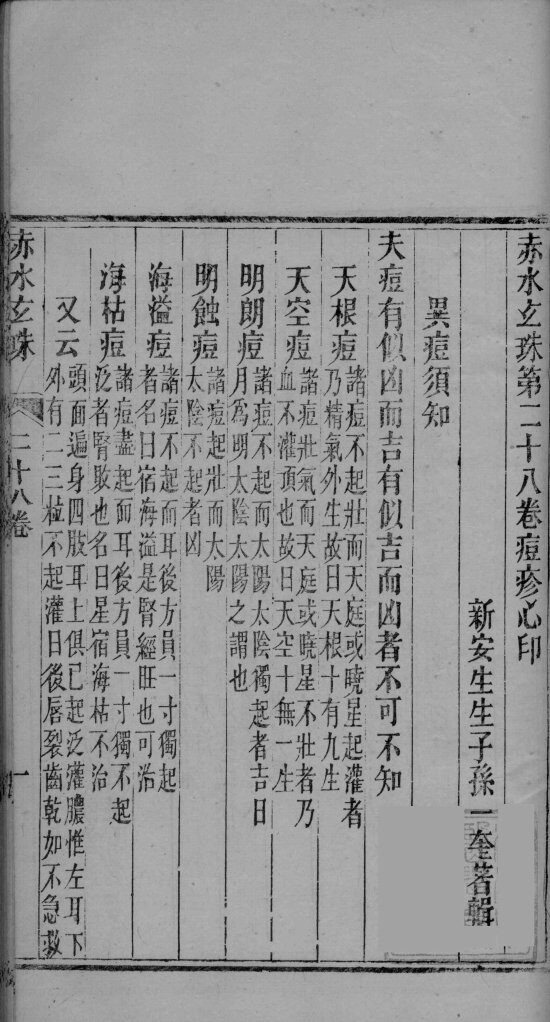 赤水玄珠第二十八卷痘疹心印
新安生生子孫一奎著輯
異痘須知
夫痘有似凶而吉有似吉而凶者不可不知
天根痘諸痘不起壯而天庭或曉星起灌者
乃精氣外生故曰天根十有九生
天空痘諸痘壯氣而天庭或曉星不壯者乃
血不灌頂也故曰天空十無一生
明朗痘諸痘不起而太陽太陰獨起者吉日
月為明太陰太陽之謂也
明蝕痘諸痘起壯而太陽
太陰不起者凶
海溢痘諸痘不起而耳後方員一寸獨起
者名曰宿海溢是腎經旺也可治
海枯痘諸痘盡起而耳後方員一寸獨不起
泛者腎敗也名曰星宿海枯不治
又云頭面遍身四肢耳上俱已起泛灌膿惟左耳下
外有二三粒不起灌日後唇裂齒乾如不急救
赤水玄珠
二十八卷
一